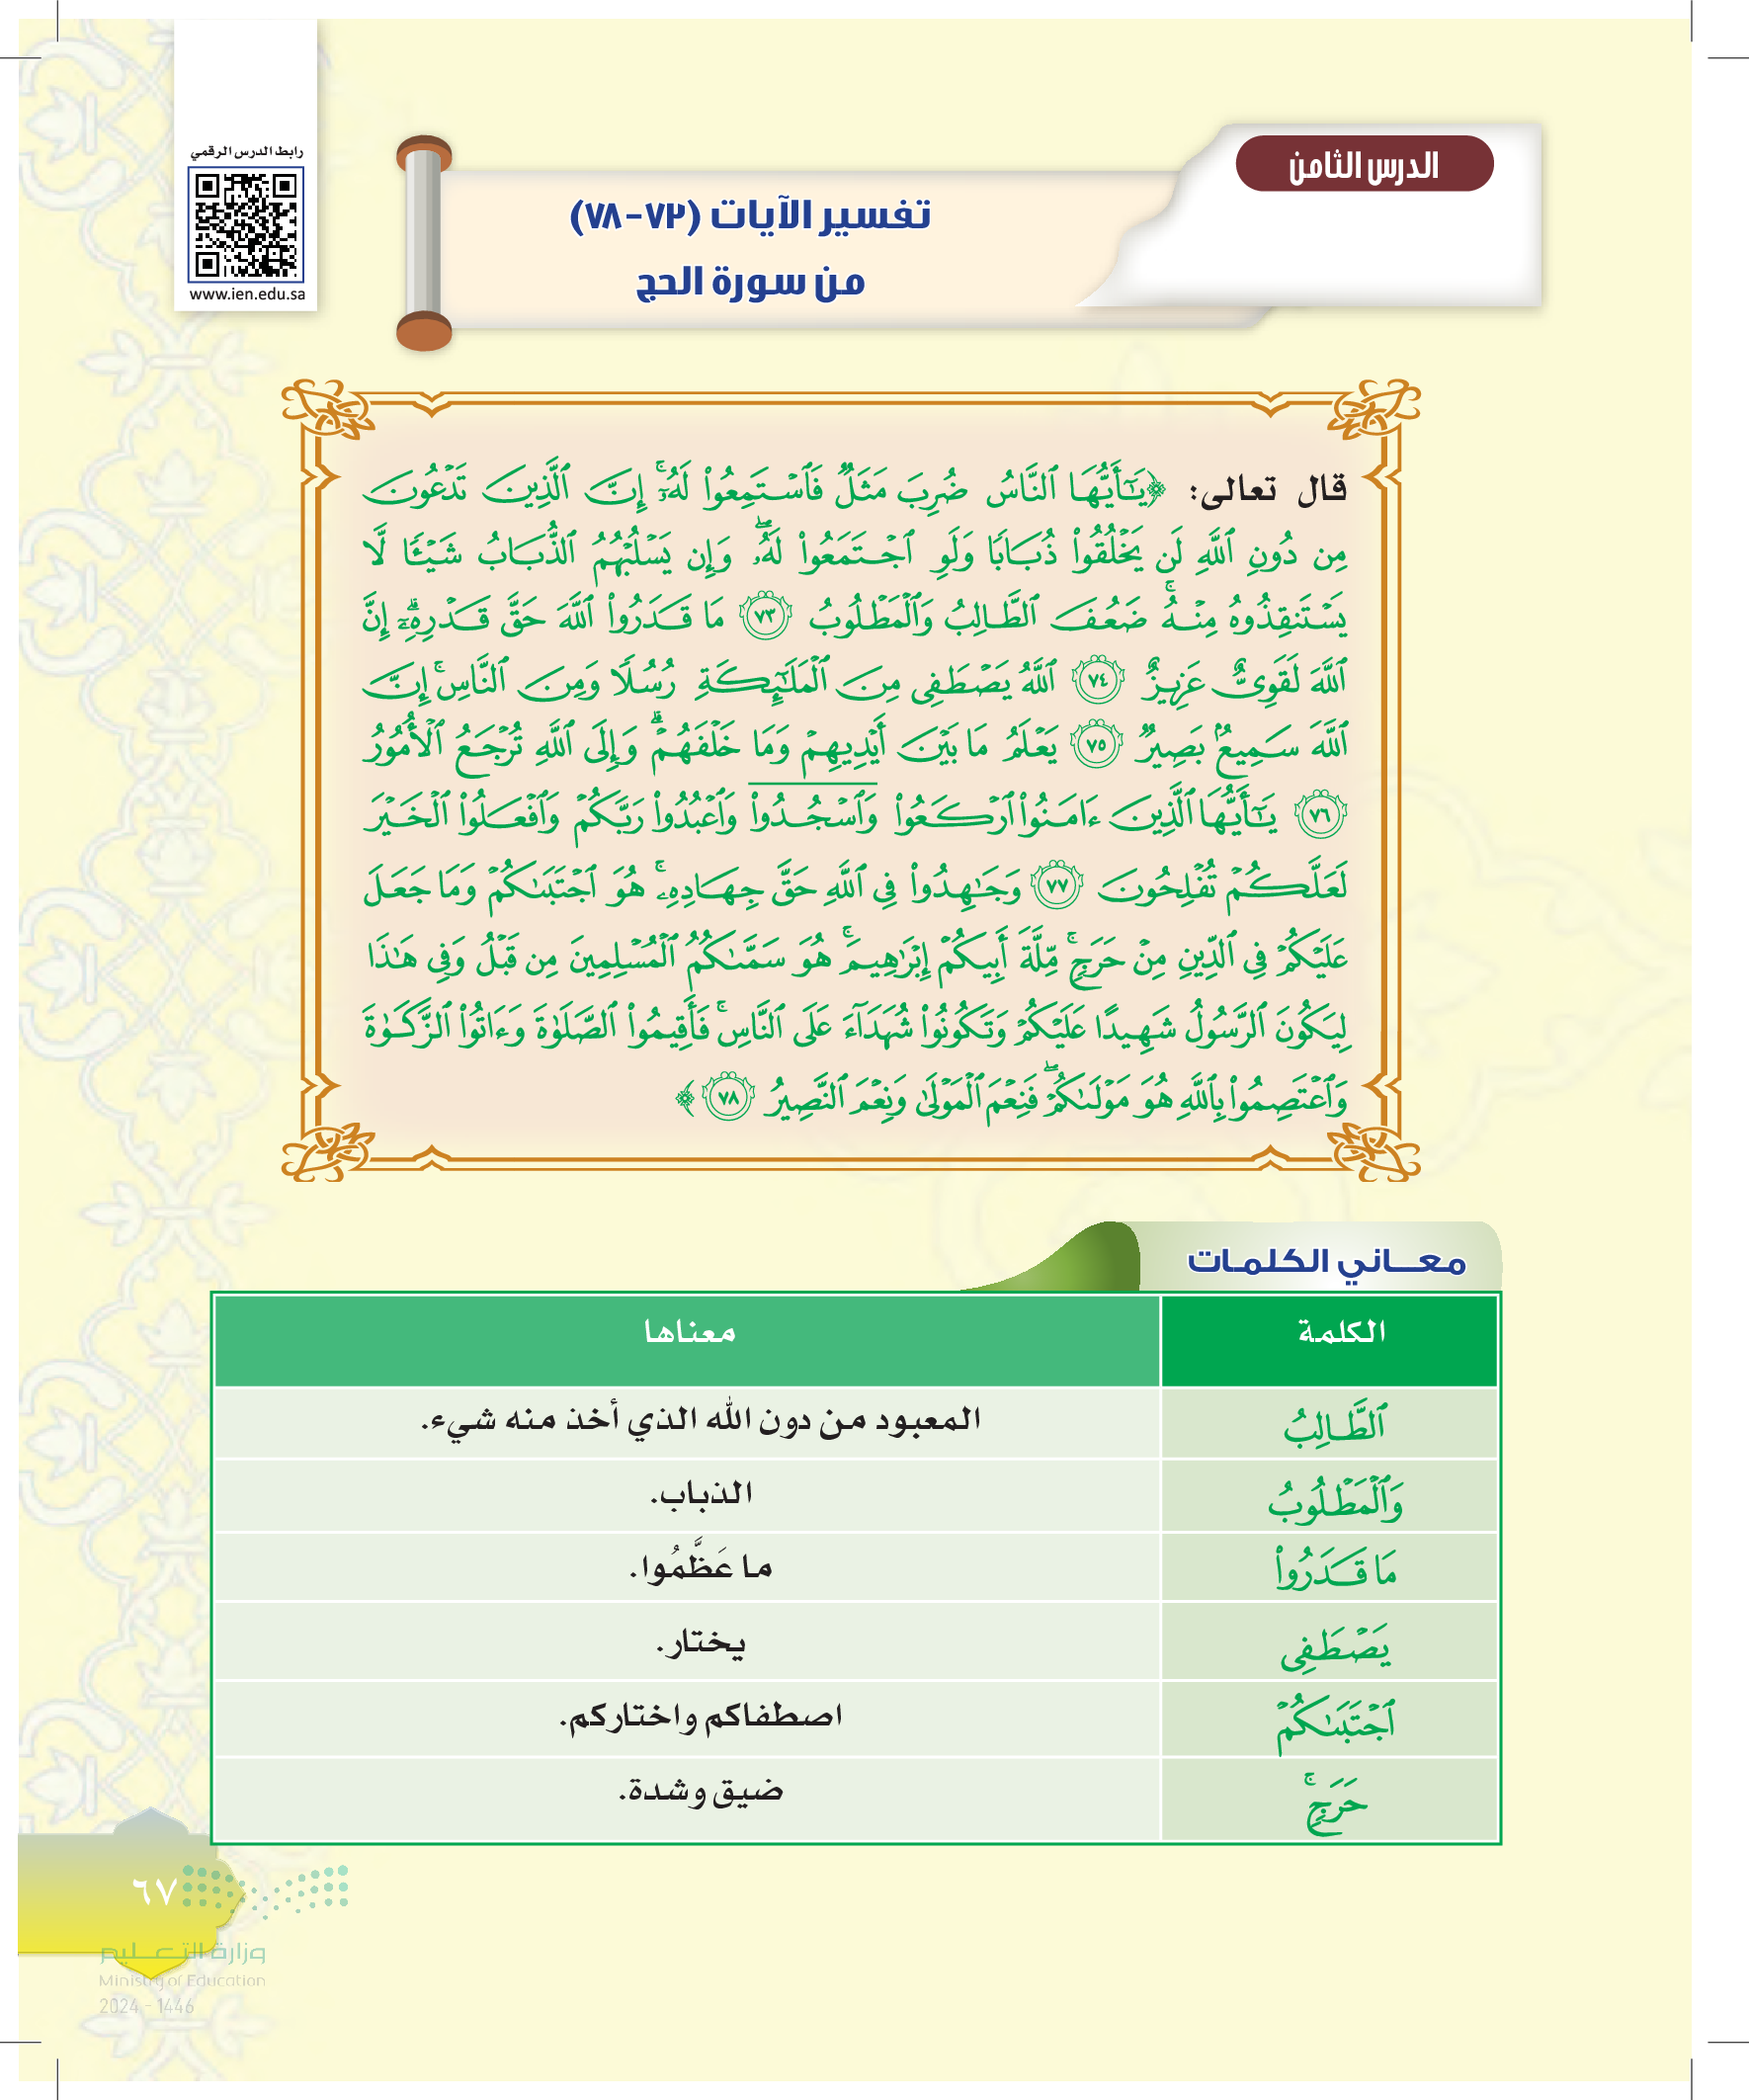 رابط الدرس الرقمي
www.ien.edu.sa
الدرس الثامن
تفسير الآيات (٧٣-٧٨)
من سورة الحج
قال تعالى: ﴿يَٰٓأَيُّهَا ٱلنَّاسُ ضُرِبَ مَثَلٞ فَٱسۡتَمِعُواْ لَهُۥٓۚ إِنَّ ٱلَّذِينَ تَدۡعُونَ
مِن دُونِ ٱللَّهِ لَن يَخۡلُقُواْ ذُبَابٗا وَلَوِ ٱجۡتَمَعُواْ لَهُۥۖ وَإِن يَسۡلُبۡهُمُ ٱلذُّبَابُ شَيۡـٔٗا لَّا
يَسۡتَنقِذُوهُ مِنۡهُۚ ضَعُفَ ٱلطَّالِبُ وَٱلۡمَطۡلُوبُ ٧٣ مَا قَدَرُواْ ٱللَّهَ حَقَّ قَدۡرِهِۦٓۗ إِنَّ
ٱللَّهَ لَقَوِيٌّ عَزِيزٌ ٧٤ ٱللَّهُ يَصۡطَفِي مِنَ ٱلۡمَلَٰٓئِكَةِ رُسُلٗا وَمِنَ ٱلنَّاسِۚ إِنَّ
ٱللَّهَ سَمِيعُۢ بَصِيرٞ ٧٥ يَعۡلَمُ مَا بَيۡنَ أَيۡدِيهِمۡ وَمَا خَلۡفَهُمۡۚ وَإِلَى ٱللَّهِ تُرۡجَعُ ٱلۡأُمُورُ
٧٦ يَٰٓأَيُّهَا ٱلَّذِينَ ءَامَنُواْ ٱرۡكَعُواْ وَٱسۡجُدُواْ وَٱعۡبُدُواْ رَبَّكُمۡ وَٱفۡعَلُواْ ٱلۡخَيۡرَ
لَعَلَّكُمۡ تُفۡلِحُونَ ٧٧ وَجَٰهِدُواْ فِي ٱللَّهِ حَقَّ جِهَادِهِۦۚ هُوَ ٱجۡتَبَىٰكُمۡ وَمَا جَعَلَ
عَلَيۡكُمۡ فِي ٱلدِّينِ مِنۡ حَرَجٖۚ مِّلَّةَ أَبِيكُمۡ إِبۡرَٰهِيمَۚ هُوَ سَمَّىٰكُمُ ٱلۡمُسۡلِمِينَ مِن قَبۡلُ وَفِي هَٰذَا
لِيَكُونَ ٱلرَّسُولُ شَهِيدًا عَلَيۡكُمۡ وَتَكُونُواْ شُهَدَآءَ عَلَى ٱلنَّاسِۚ فَأَقِيمُواْ ٱلصَّلَوٰةَ وَءَاتُواْ ٱلزَّكَوٰةَ
وَٱعۡتَصِمُواْ بِٱللَّهِ هُوَ مَوۡلَىٰكُمۡۖ فَنِعۡمَ ٱلۡمَوۡلَىٰ وَنِعۡمَ ٱلنَّصِيرُ ٧٨﴾
معـــاني الكلمـات
الكلمة معناها
ٱلطَّالِبُ المعبود من دون الله الذي أخذ منه شيء.
وَٱلۡمَطۡلُوبُ الذباب.
مَا قَدَرُواْ ما عَظَّمُوا.
يَصۡطَفِي يختار.
ٱجۡتَبَىٰكُمۡ اصطفاكم واختاركم.
حَرَجٖۚ ضيق وشدة.
٦٧
وزارة التعليم
Ministry of Education
2024 - 1446